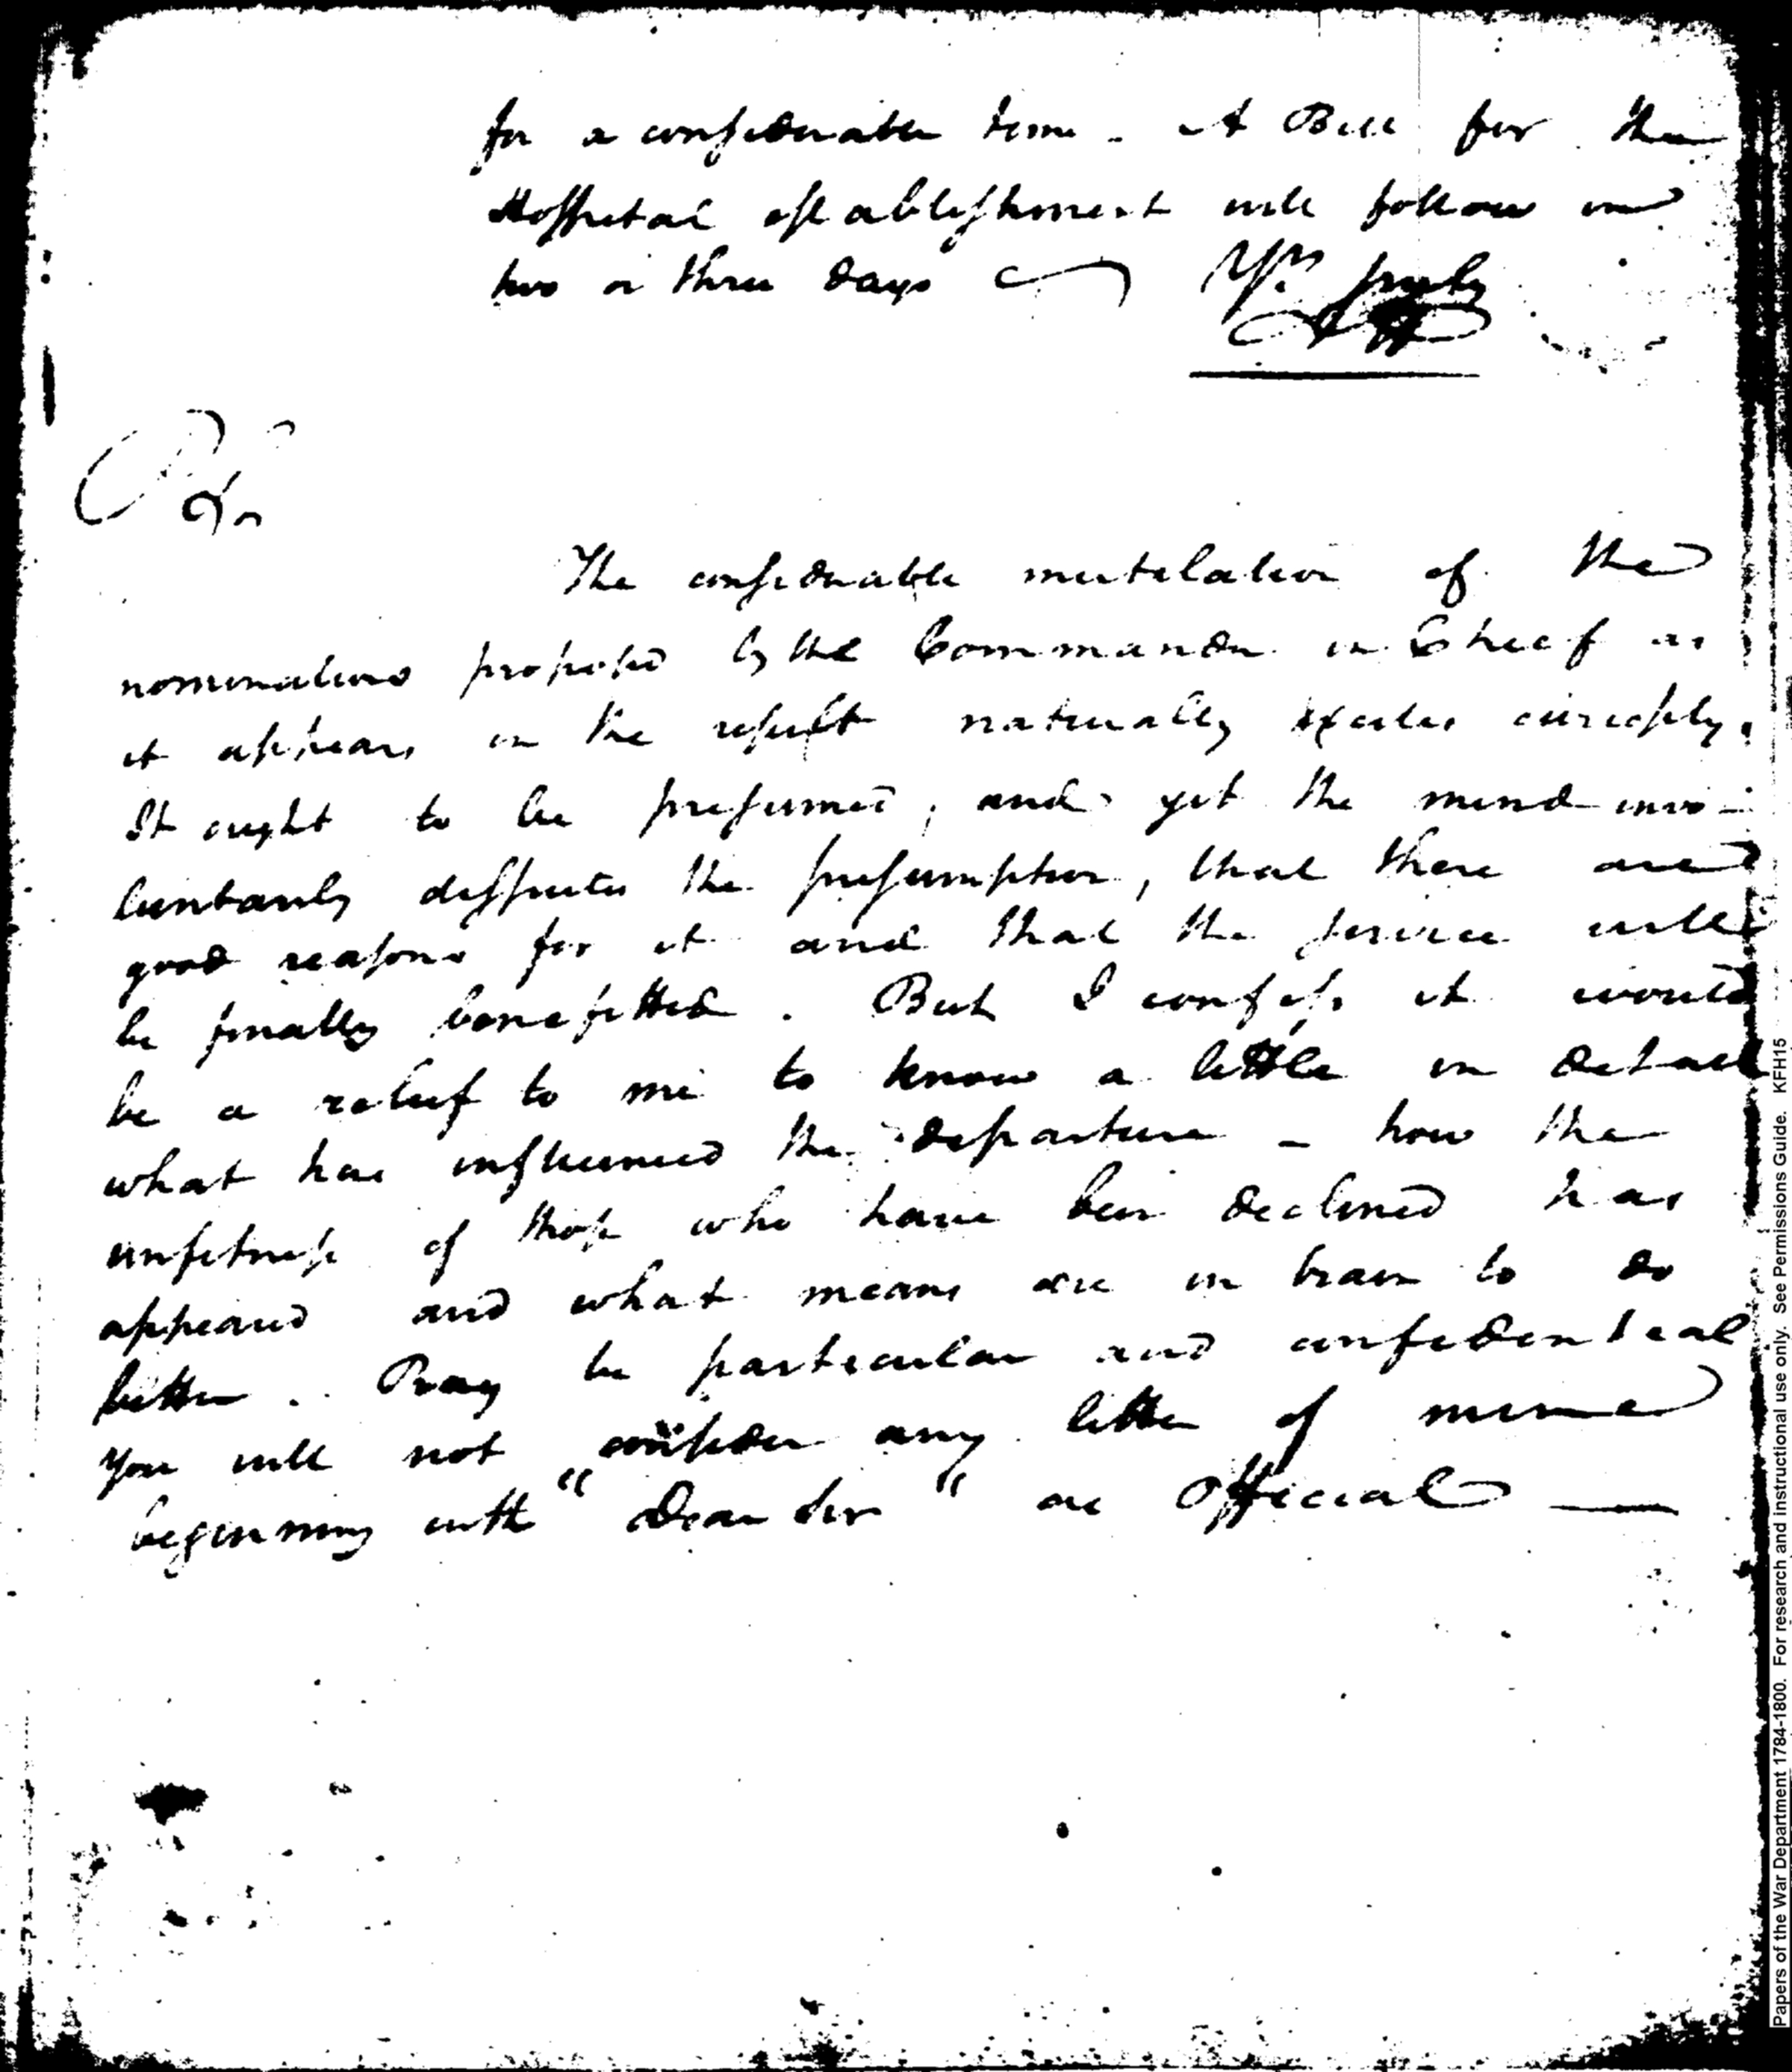 for a considerable time. A Bill for the
Hospital establishment will follow in
two or three days Yrs truly
AH
The considerable mutilation of the
nominations proposed by the Commander in Chief as
it appears in the result naturally excites curiosity.
It ought to be presumed, and yet the mind invo-
luntarily disputes the presumption, that there are
good reasons for it and that the service will
be finally benefitted. But I confess it would
be a relief to me to know a little in detail
what has influenced the departure – how the
unfitness of those who have been declined has
appeared and what means are in train to do
better. Pray be particular and confidential
You will not consider any letter of mine
beginning with "Dear Sir" as Official —
Papers of the War Department 1784-1800. For research and instructional use only. See Permissions Guide. KFH15